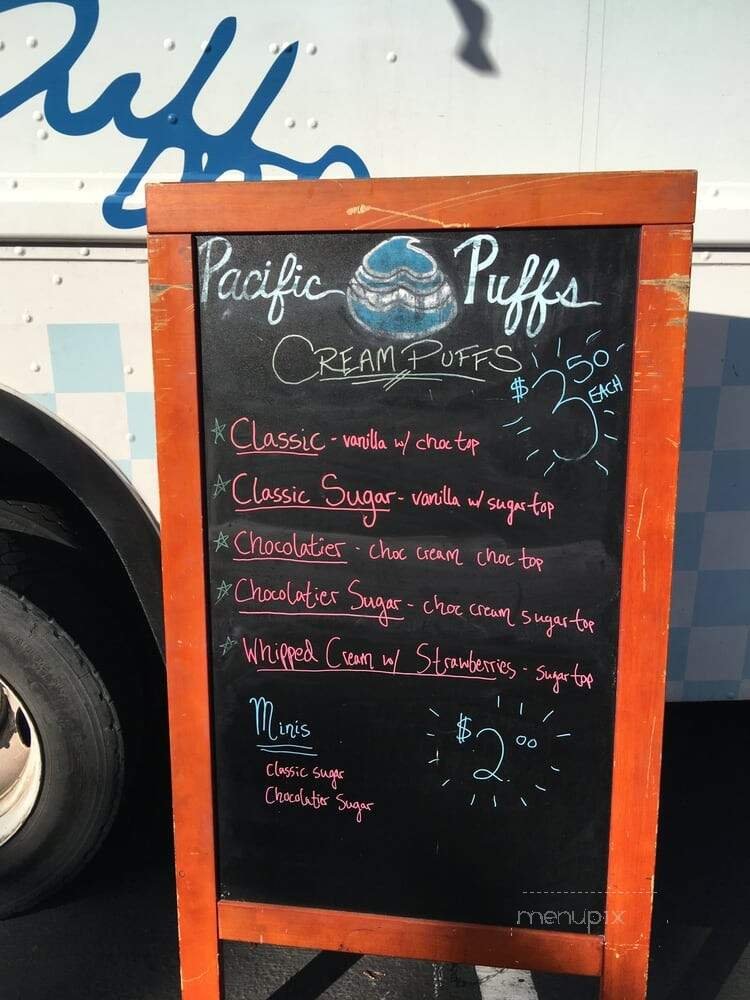 Puffs
Pacific Puffs
CREAM PUFFS
$3.50 EACH
Classic - vanilla w/ choc top
Classic Sugar - vanilla w/ sugar top
Chocolatier - choc cream choc top
Chocolatier Sugar - choc cream sugar top
Whipped Cream w/ Strawberries - sugar top
Minis
$2.00
Classic sugar
Chocolatier Sugar
menupix